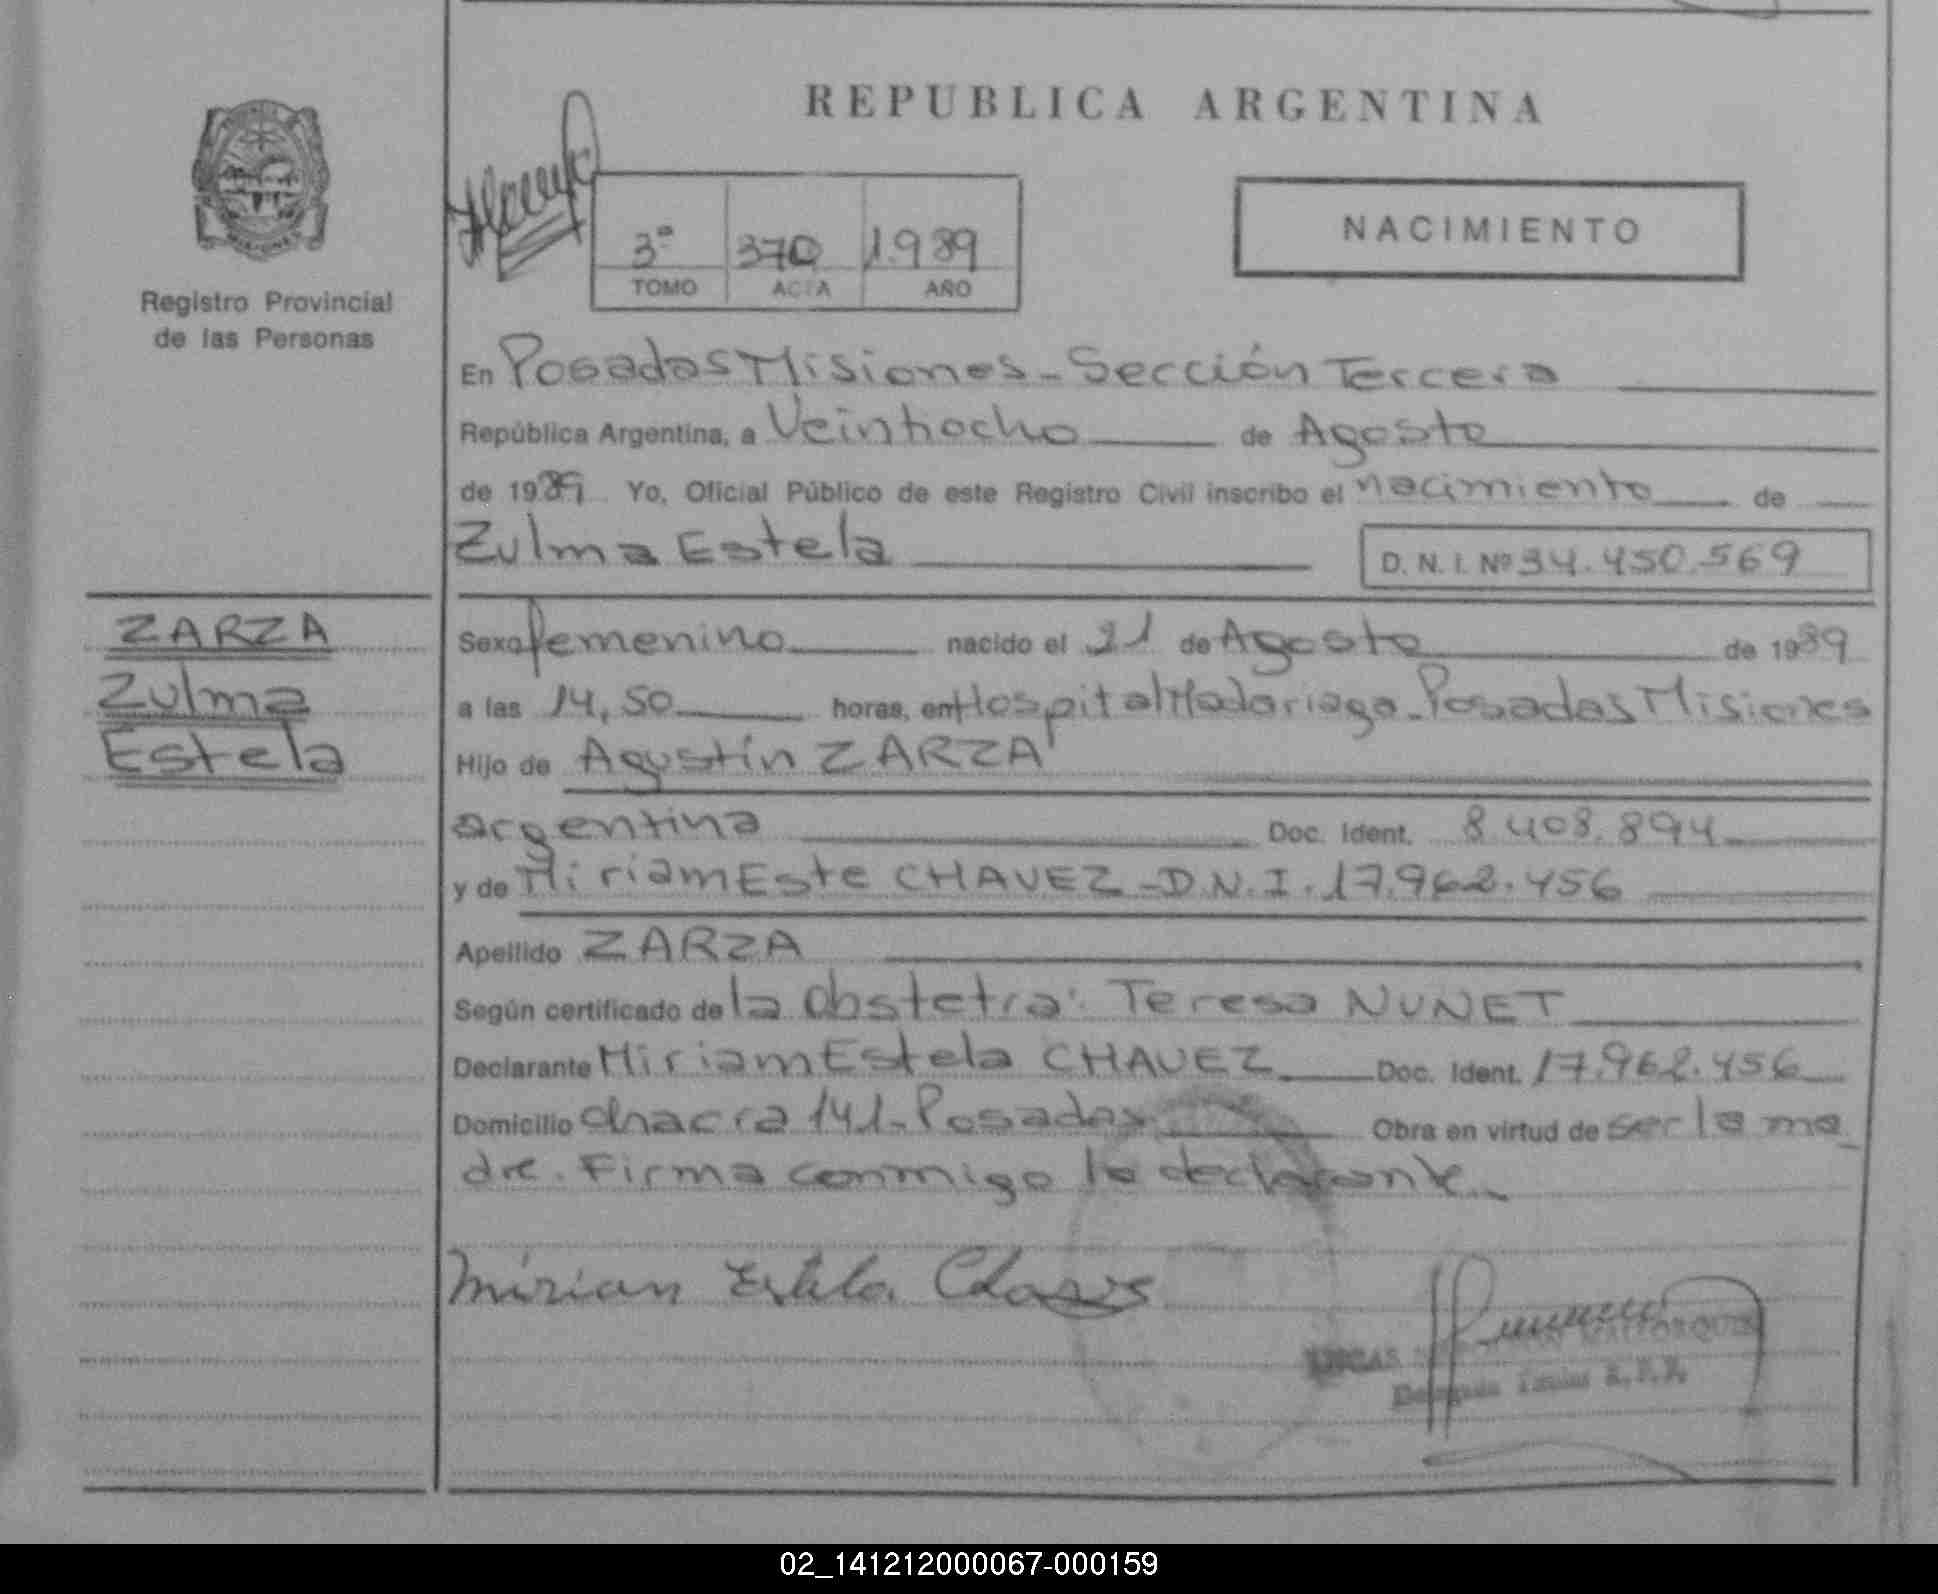 REPUBLICA ARGENTINA
NACIMIENTO
3º 370 1.989
TOMO ACTA AÑO
Registro Provincial
de las Personas
En Posadas Misiones - Sección Tercera
República Argentina, a Veintiocho de Agosto
de 1989 Yo, Oficial Público de este Registro Civil inscribo el nacimiento de
Zulma Estela D. N. I. Nº 34.450.569
ZARZA
Zulma
Estela
Sexo femenino nacido el 21 de Agosto de 1989
a las 14,50 horas, en Hospital Madariaga - Posadas Misiones
Hijo de Agustín ZARZA
argentina Doc. Ident. 8.408.894
y de Miriam Este CHAVEZ - D.N.I. 17.962.456
Apellido ZARZA
Según certificado de la Obstetra: Teresa NUNET
Declarante Miriam Estela CHAVEZ Doc. Ident. 17.962.456
Domicilio chacra 141 - Posadas Obra en virtud de ser la ma
dre. Firma conmigo la declarante.
Mirian Estela Chaves
LUCAS
02_141212000067-000159